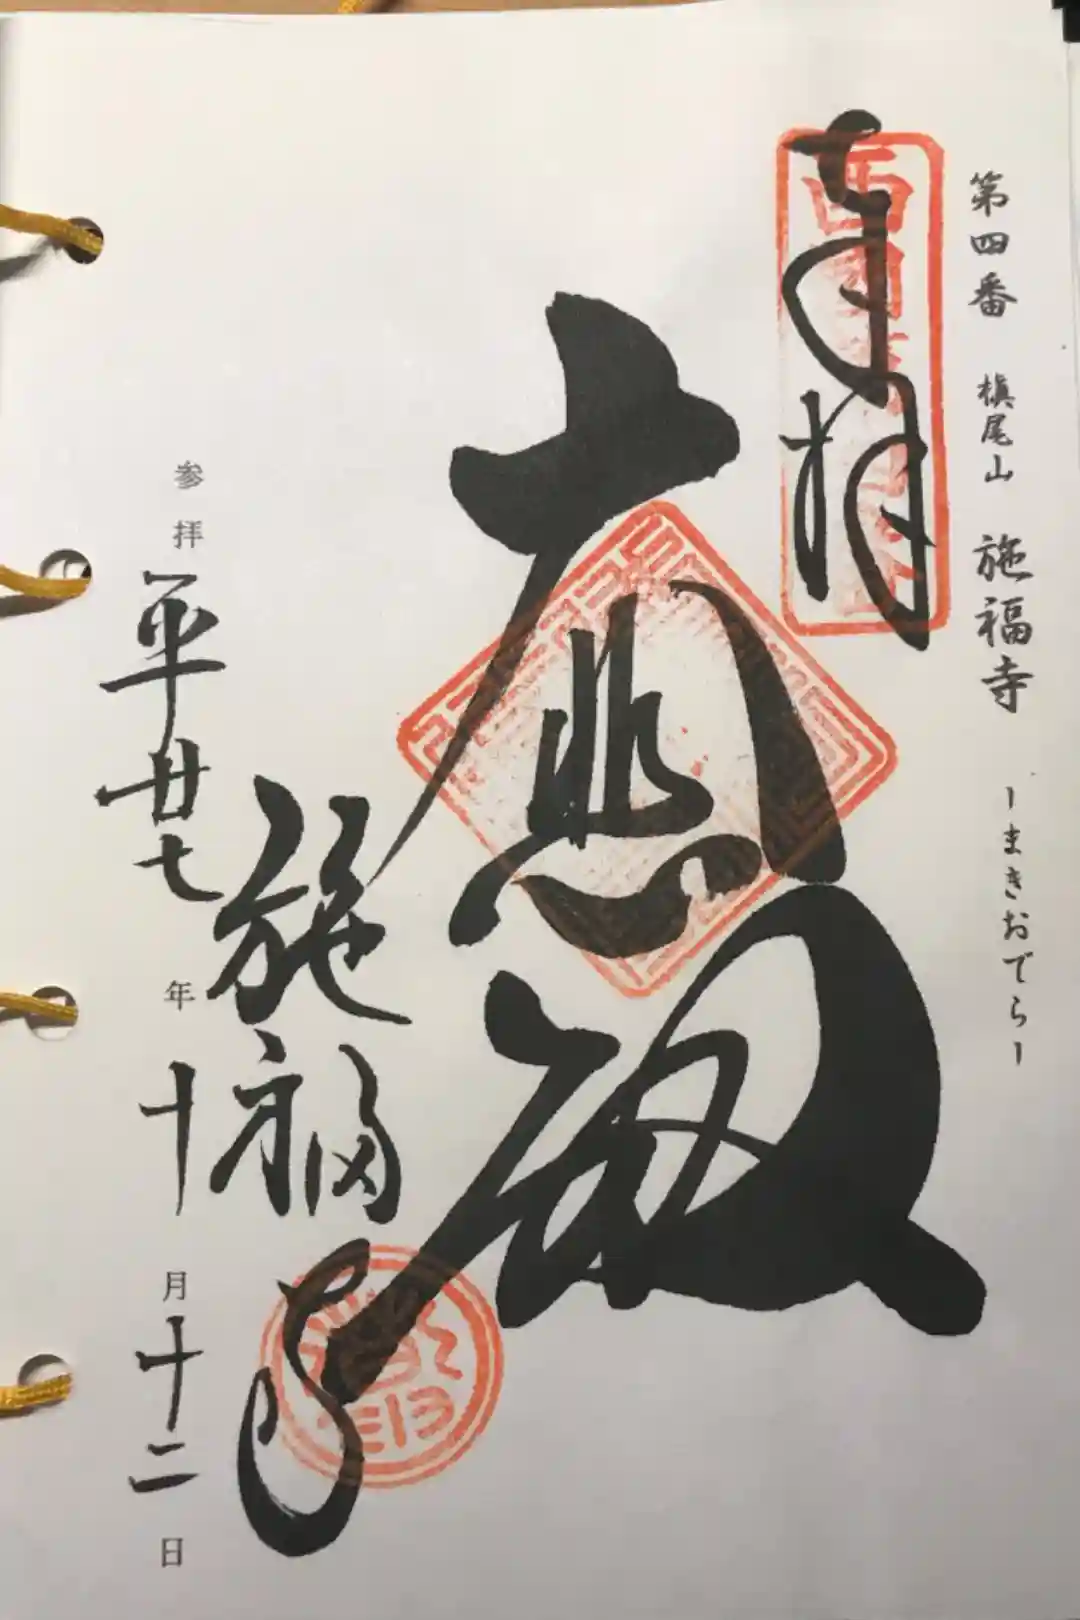 第四番 槇尾山 施福寺 ーまきおでらー
奉拝
大悲殿
施福寺
参拝 平廿七年十月十二日